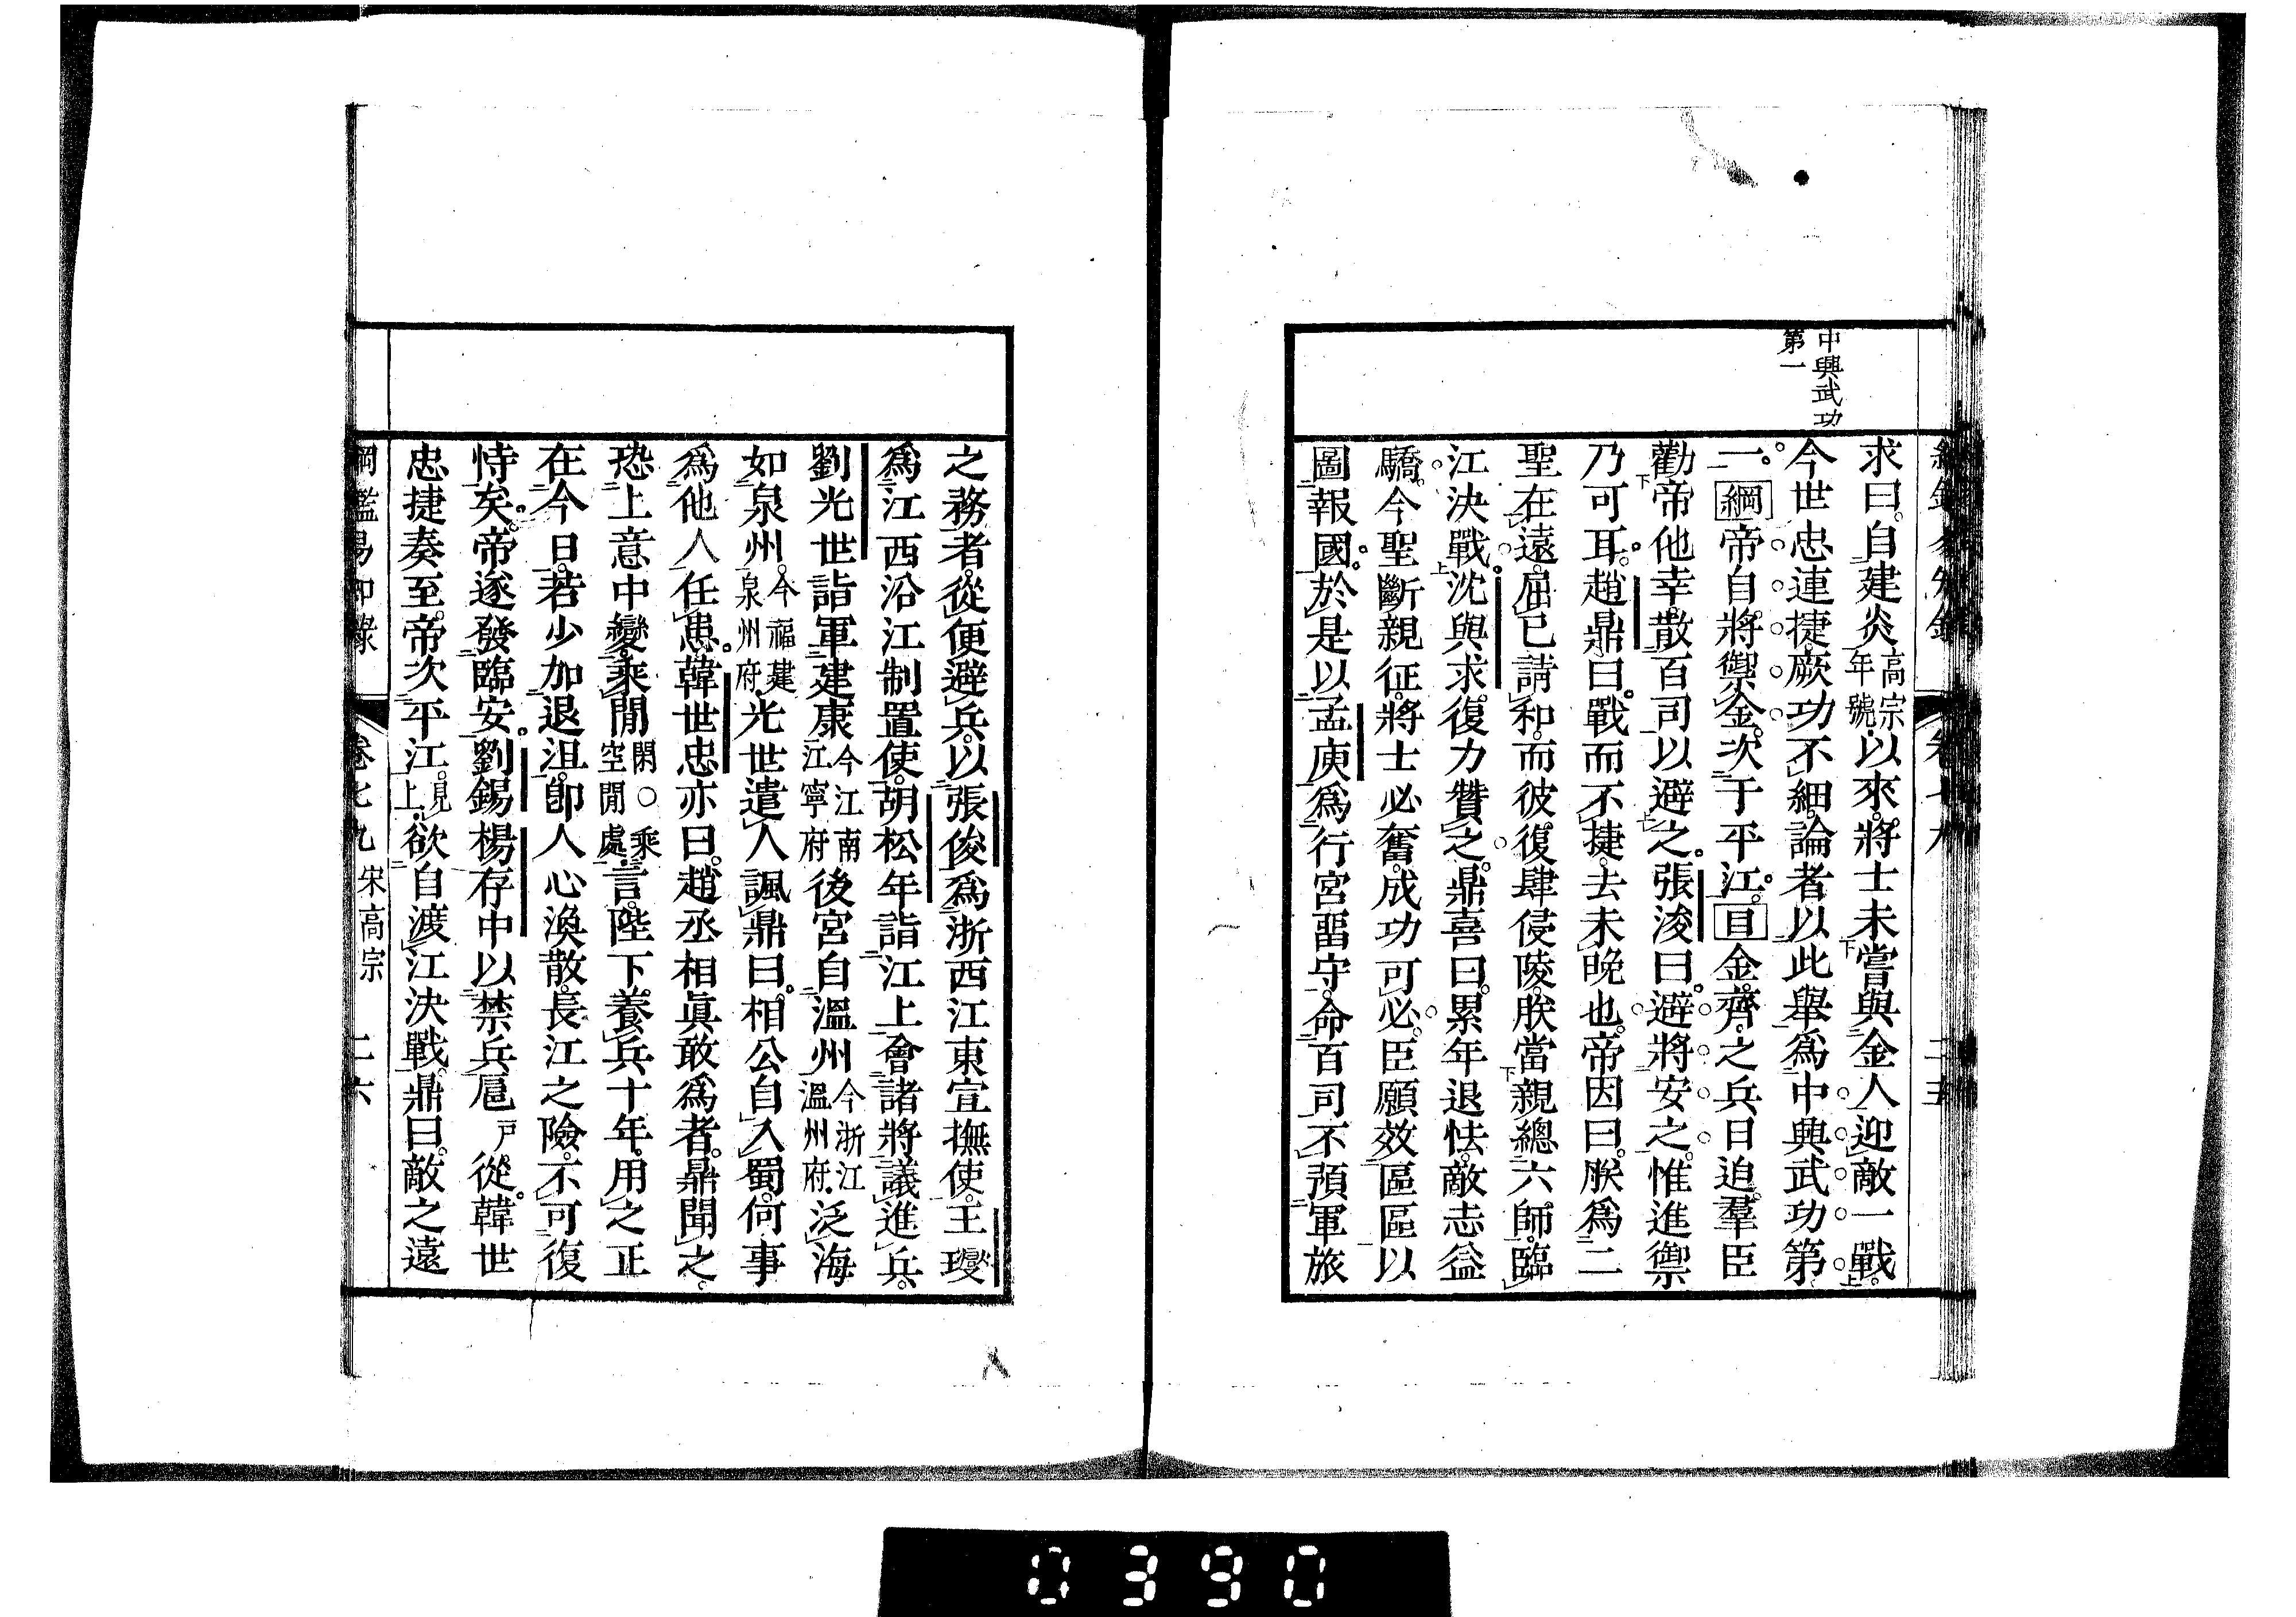 中興武功
第一
求曰自建炎高宗年號以來將士未嘗與金人迎敵一戰
今世忠連捷厥功不細論者以此舉爲中興武功第
一綱帝自將禦金次于平江目金齊之兵日迫羣臣
勸帝他幸散百司以避之張浚曰避將安之惟進禦
乃可耳趙鼎曰戰而不捷去未晚也帝因曰朕爲二
聖在遠屈己請和而彼復肆侵陵朕當親總六師臨
江決戰沈與求復力贊之鼎喜曰累年退怯敵志益
驕今聖斷親征將士必奮成功可必臣願效區區以
圖報國於是以孟庾爲行宮畱守命百司不預軍旅
之務者從便避兵以張俊爲浙西江東宣撫使王𤫉
爲江西沿江制置使胡松年詣江上會諸將議進兵
劉光世詣軍建康今江南江寧府後宮自溫州今浙江溫州府泛海
如泉州今福建泉州府光世遣人諷鼎曰相公自入蜀何事
爲他人任患韓世忠亦曰趙丞相眞敢爲者鼎聞之
恐上意中變乘閒閑○乘空閒處言陛下養兵十年用之正
在今日若少加退沮卽人心渙散長江之險不可復
恃矣帝遂發臨安劉錫楊存中以禁兵扈戸從韓世
忠捷奏至帝次平江見上欲自渡江決戰鼎曰敵之遠
綱鑑易知錄 卷七九 宋高宗 二六
0390